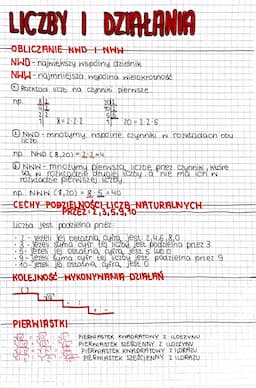 LICZBY I DZIAŁANIA
OBLICZANIE NWD I NWW
NWD - największy wspólny dzielnik
NWW - najmniejsza wspólna wielokrotność
① Rozkład liczb na czynniki pierwsze
np. 8|2 20|2
4|2 10|2
2|2 5|5
1| 8=2·2·2 1| 20=2·2·5
② NWD - mnożymy wspólne czynniki w rozkładach obu
liczb.
np. NWD (8,20)=2·2=4
③ NWW - mnożymy pierwszą liczbę przez czynniki, które
są w rozkładzie drugiej liczby, a nie ma ich w
rozkładzie pierwszej liczby.
np. NWW (8,20)= 8·5=40
CECHY PODZIELNOŚCI LICZB NATURALNYCH
PRZEZ: 2,3,5,9,10
Liczba jest podzielna przez:
· 2 - jeżeli jej ostatnią cyfrą jest 2,4,6,8,0
· 3 - jeżeli suma cyfr tej liczby jest podzielna przez 3
· 5 - jeżeli jej ostatnią cyfrą jest 5 lub 0
· 9 - jeżeli suma cyfr tej liczby jest podzielna przez 9
· 10 - jeżeli jej ostatnią cyfrą jest 0
KOLEJNOŚĆ WYKONYWANIA DZIAŁAŃ
( )
PIERWIASTKI
PIERWIASTEK KWADRATOWY Z ILOCZYNU
PIERWIASTEK SZEŚCIENNY Z ILOCZYNU
PIERWIASTEK KWADRATOWY Z ILORAZU
PIERWIASTEK SZEŚCIENNY Z ILORAZU